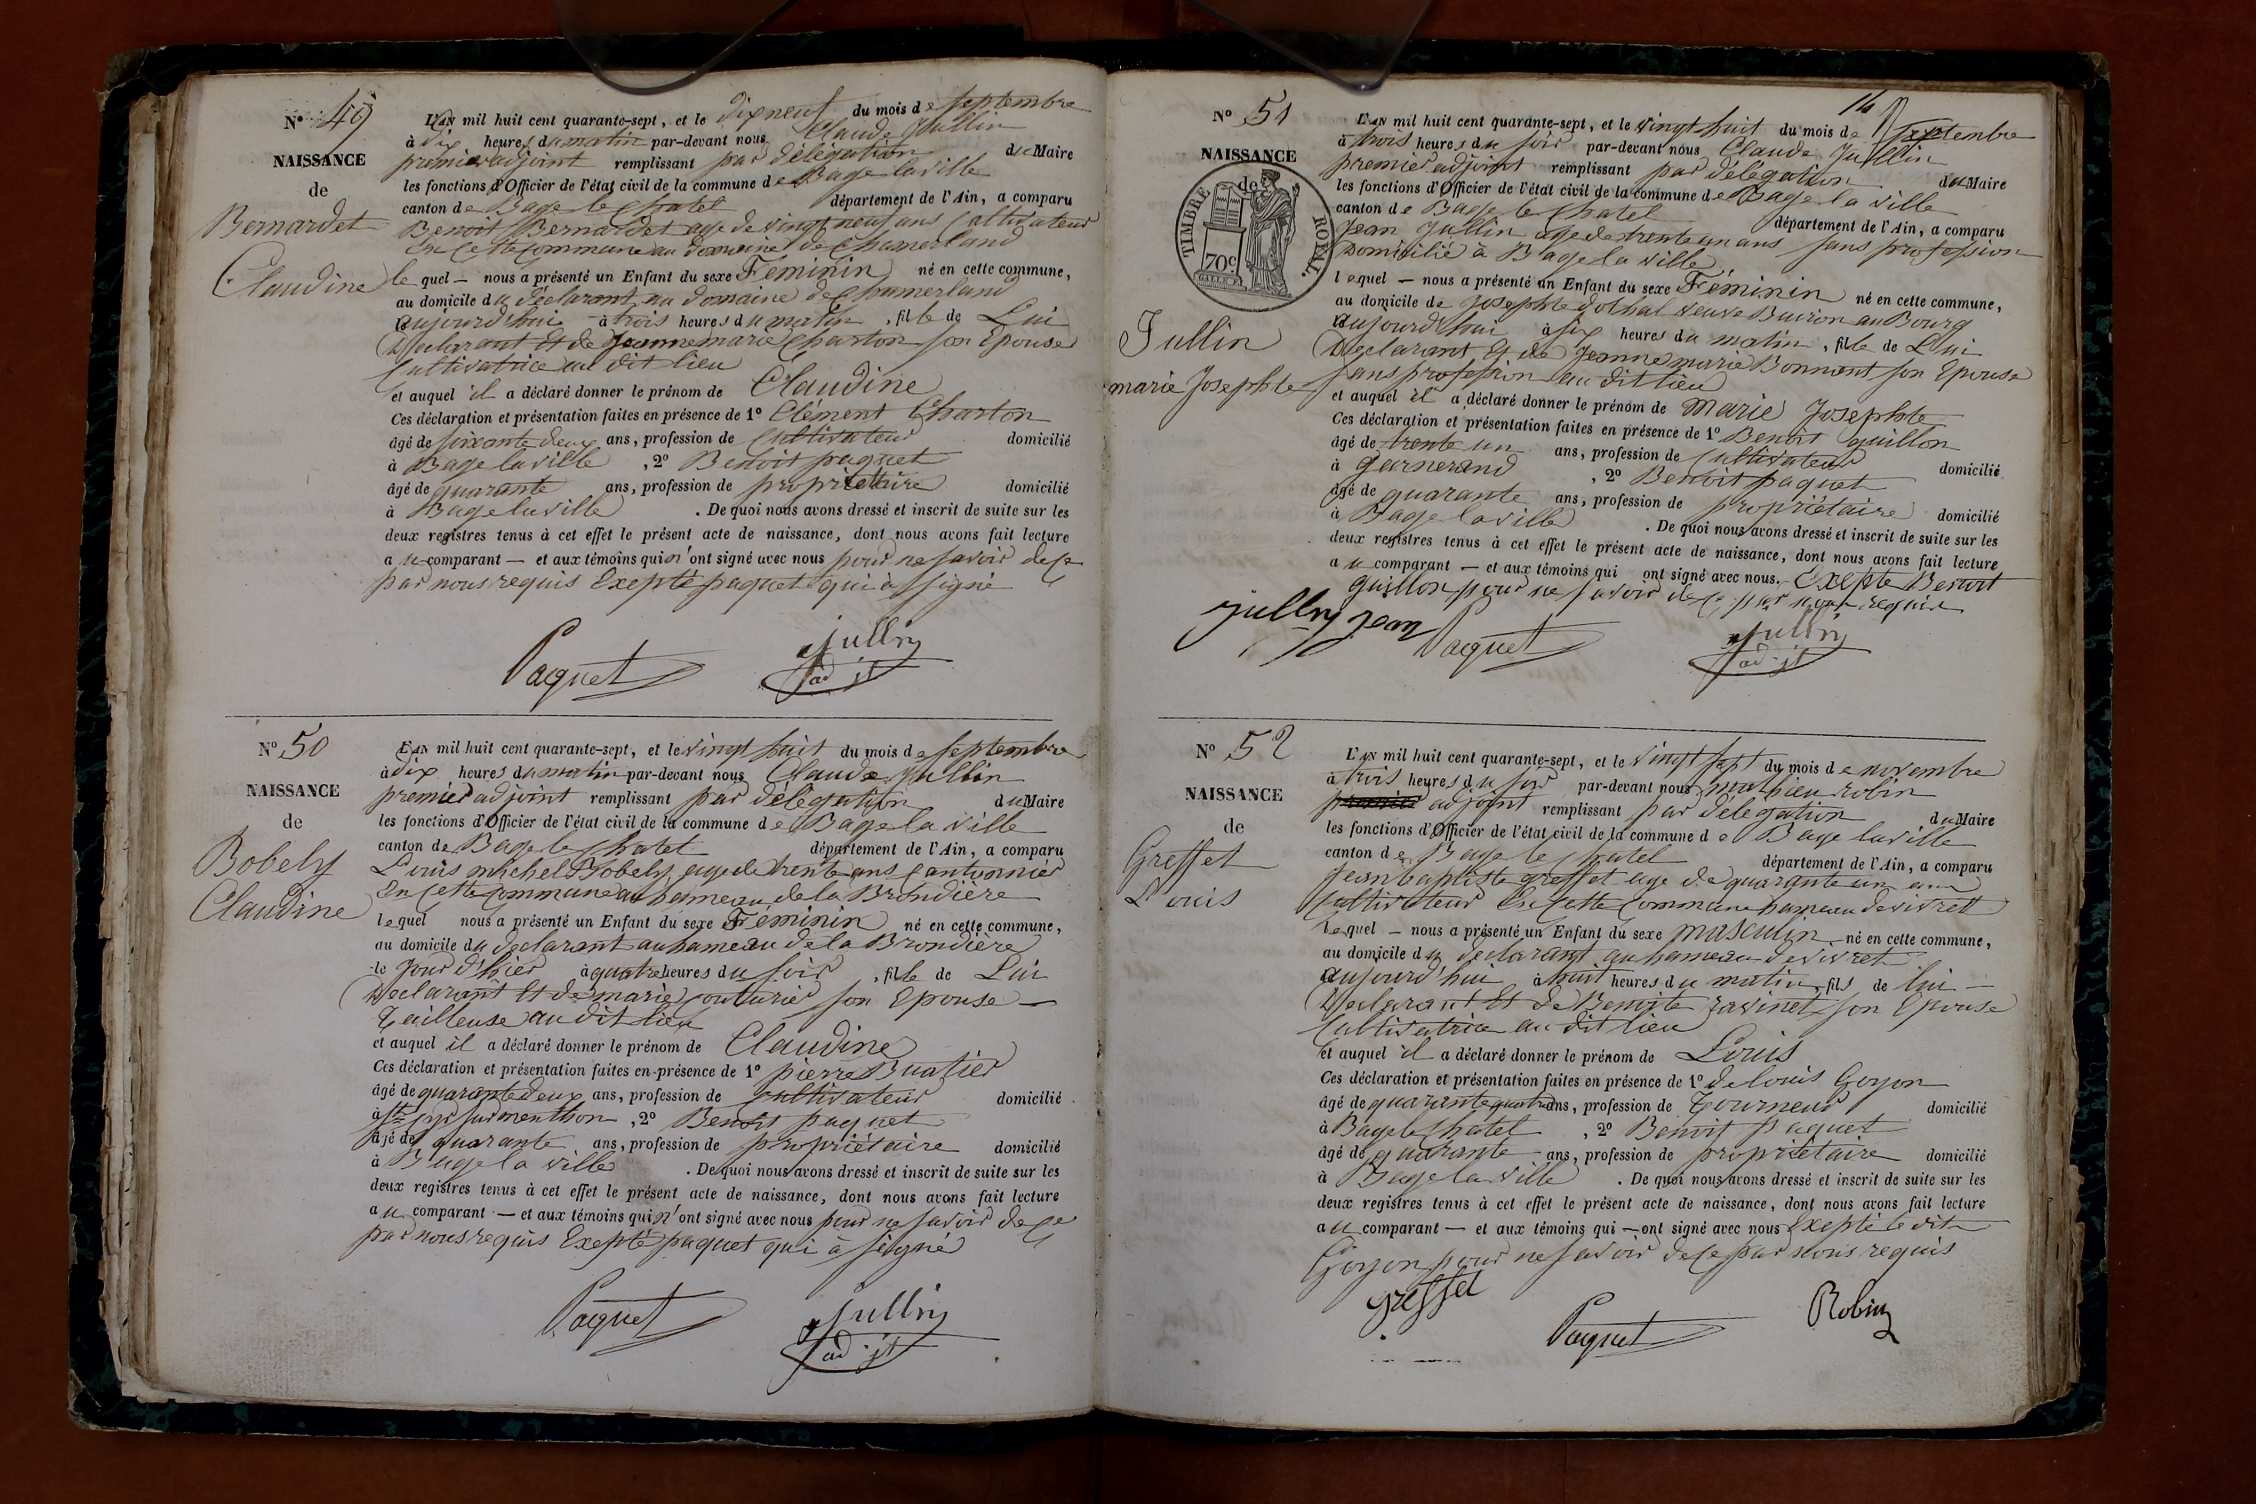 Nº 49
NAISSANCE
de
Bernardet
Claudine
L'AN mil huit cent quarante-sept, et le dix neuf du mois de septembre
à dix heures du matin par-devant nous Claude Jullin
premier adjoint remplissant par délégation du Maire
les fonctions d'Officier de l'état civil de la commune de Bage la ville
canton de Bage le Chatel département de l'Ain, a comparu
Benoit Bernardet age de vingt neuf ans Cultivateur
En Cette Commune au domaine de Chamerland
le quel — nous a présenté un Enfant du sexe Féminin né en cette commune,
au domicile du déclarant au domaine de Chamerland
aujourd'hui à trois heures du matin, fille de Lui
Déclarant Et de Jeanne marie Charton son Epouse
Cultivatrice au dit lieu
et auquel il a déclaré donner le prénom de Claudine
Ces déclaration et présentation faites en présence de 1º Clément Charton
âgé de soixante deux ans, profession de Cultivateur domicilié
à Bage la ville, 2º Benoit paquet
âgé de quarante ans, profession de propriétaire domicilié
à Bage la ville. De quoi nous avons dressé et inscrit de suite sur les
deux registres tenus à cet effet le présent acte de naissance, dont nous avons fait lecture
au comparant — et aux témoins qui n'ont signé avec nous pour ne savoir de ce
par nous requis Exepté paquet qui à signé
Paquet Jullin
adjt
Nº 50
NAISSANCE
de
Bobely
Claudine
L'AN mil huit cent quarante-sept, et le vingt huit du mois de septembre
à dix heures du matin par-devant nous Claude Jullin
premier adjoint remplissant par délégation du Maire
les fonctions d'Officier de l'état civil de la commune de Bage la ville
canton de Bage le Chatel département de l'Ain, a comparu
Louis michel Bobely age de trente ans Cantonnier
En Cette Commune au hameau de la Brondière
lequel nous a présenté un Enfant du sexe Féminin né en cette commune,
au domicile du declarant au hameau de la Brondière
le jour d'hier à quatre heures du soir, fille de Lui
Declarant Et de marie couturier son Epouse —
Tailleuse au dit lieu
et auquel il a déclaré donner le prénom de Claudine
Ces déclaration et présentation faites en présence de 1º pierre Buatier
âgé de quarante deux ans, profession de cultivateur domicilié
à St cyr sur menthon, 2º Benoit paquet
âgé de quarante ans, profession de propriétaire domicilié
à Bage la ville. De quoi nous avons dressé et inscrit de suite sur les
deux registres tenus à cet effet le présent acte de naissance, dont nous avons fait lecture
au comparant — et aux témoins qui n'ont signé avec nous pour ne savoir de ce
par nous requis Exepté paquet qui à signé
Paquet Jullin
adjt
14
Nº 51
NAISSANCE
de
TIMBRE ROYAL.
70c
Jullin
marie Josephte
L'AN mil huit cent quarante-sept, et le vingt huit du mois de septembre
à trois heures du soir par-devant nous Claude Jullin
premier adjoint remplissant par délégation du Maire
les fonctions d'Officier de l'état civil de la commune de Bage la ville
canton de Bage le Chatel département de l'Ain, a comparu
Jean Jullin age de trente un ans sans profession
Domicilié à Bage la ville
lequel — nous a présenté un Enfant du sexe Féminin né en cette commune,
au domicile de Josephte veuve Buiron au Bourg
aujourd'hui à six heures du matin, fille de Lui
Declarant Et de Jeanne marie Bonnant son Epouse
sans profession au dit lieu
et auquel il a déclaré donner le prénom de marie Josephte
Ces déclaration et présentation faites en présence de 1º Benoit guillon
âgé de trente un ans, profession de Cultivateur domicilié
à garnerand, 2º Benoit paquet
âgé de quarante ans, profession de propriétaire domicilié
à Bage la ville. De quoi nous avons dressé et inscrit de suite sur les
deux registres tenus à cet effet le présent acte de naissance, dont nous avons fait lecture
au comparant — et aux témoins qui ont signé avec nous. Exepte Benoit
guillon pour ne savoir de ce par nous requis
jullin jean Paquet Jullin
adjt
Nº 52
NAISSANCE
de
Greffet
Louis
L'AN mil huit cent quarante-sept, et le vingt sept du mois de novembre
à trois heures du soir par-devant nous mathieu robin
adjoint remplissant par délégation du Maire
les fonctions d'Officier de l'état civil de la commune de Bage la ville
canton de Bage le chatel département de l'Ain, a comparu
Jean baptiste greffet age de quarante un ans
Cultivateur En Cette Commune hameau de vivret
lequel — nous a présenté un Enfant du sexe masculin né en cette commune,
au domicile du declarant au hameau de vivret
aujourd'hui à huit heures du matin, fils de lui —
Declarant Et de Benoite ravinet son Epouse
Cultivatrice au dit lieu
et auquel il a déclaré donner le prénom de Louis
Ces déclaration et présentation faites en présence de 1º de louis Goyon
âgé de quarante quatre ans, profession de Tourneur domicilié
à Bage le Chatel, 2º Benoit paquet
âgé de quarante ans, profession de propriétaire domicilié
à Bage la ville. De quoi nous avons dressé et inscrit de suite sur les
deux registres tenus à cet effet le présent acte de naissance, dont nous avons fait lecture
au comparant — et aux témoins qui — ont signé avec nous Exepté le dit
Goyon pour ne savoir de ce par nous requis
greffet Paquet Robin